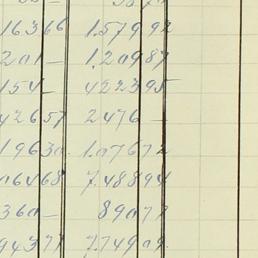 16366 157992
201 — 120987
154 — 422395
42657 2476 —
19630 107672
06468 748894
360 — 89077
94377 774909